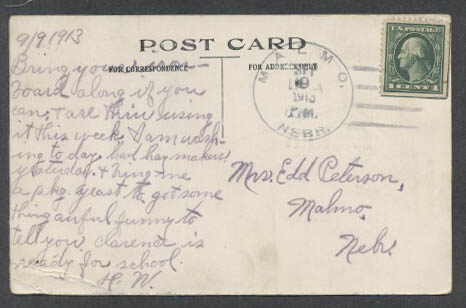 9/9 1913
POST CARD
FOR CORRESPONDENCE
FOR ADDRESS ONLY
U.S. POSTAGE
1 CENT 1
MALMO,
SEP
9
1913
P.M.
NEBR.
Bring your
board along if you
can, + are thru using
it this week, I am wash-
ing to day, had hay makers
yesteday. + bring me
a pkg. yeast to got some
thing airful funny to
tell you clarence is
ready for school.
H. W.
Mrs. Edd Peterson,
Malmo,
Nebr.